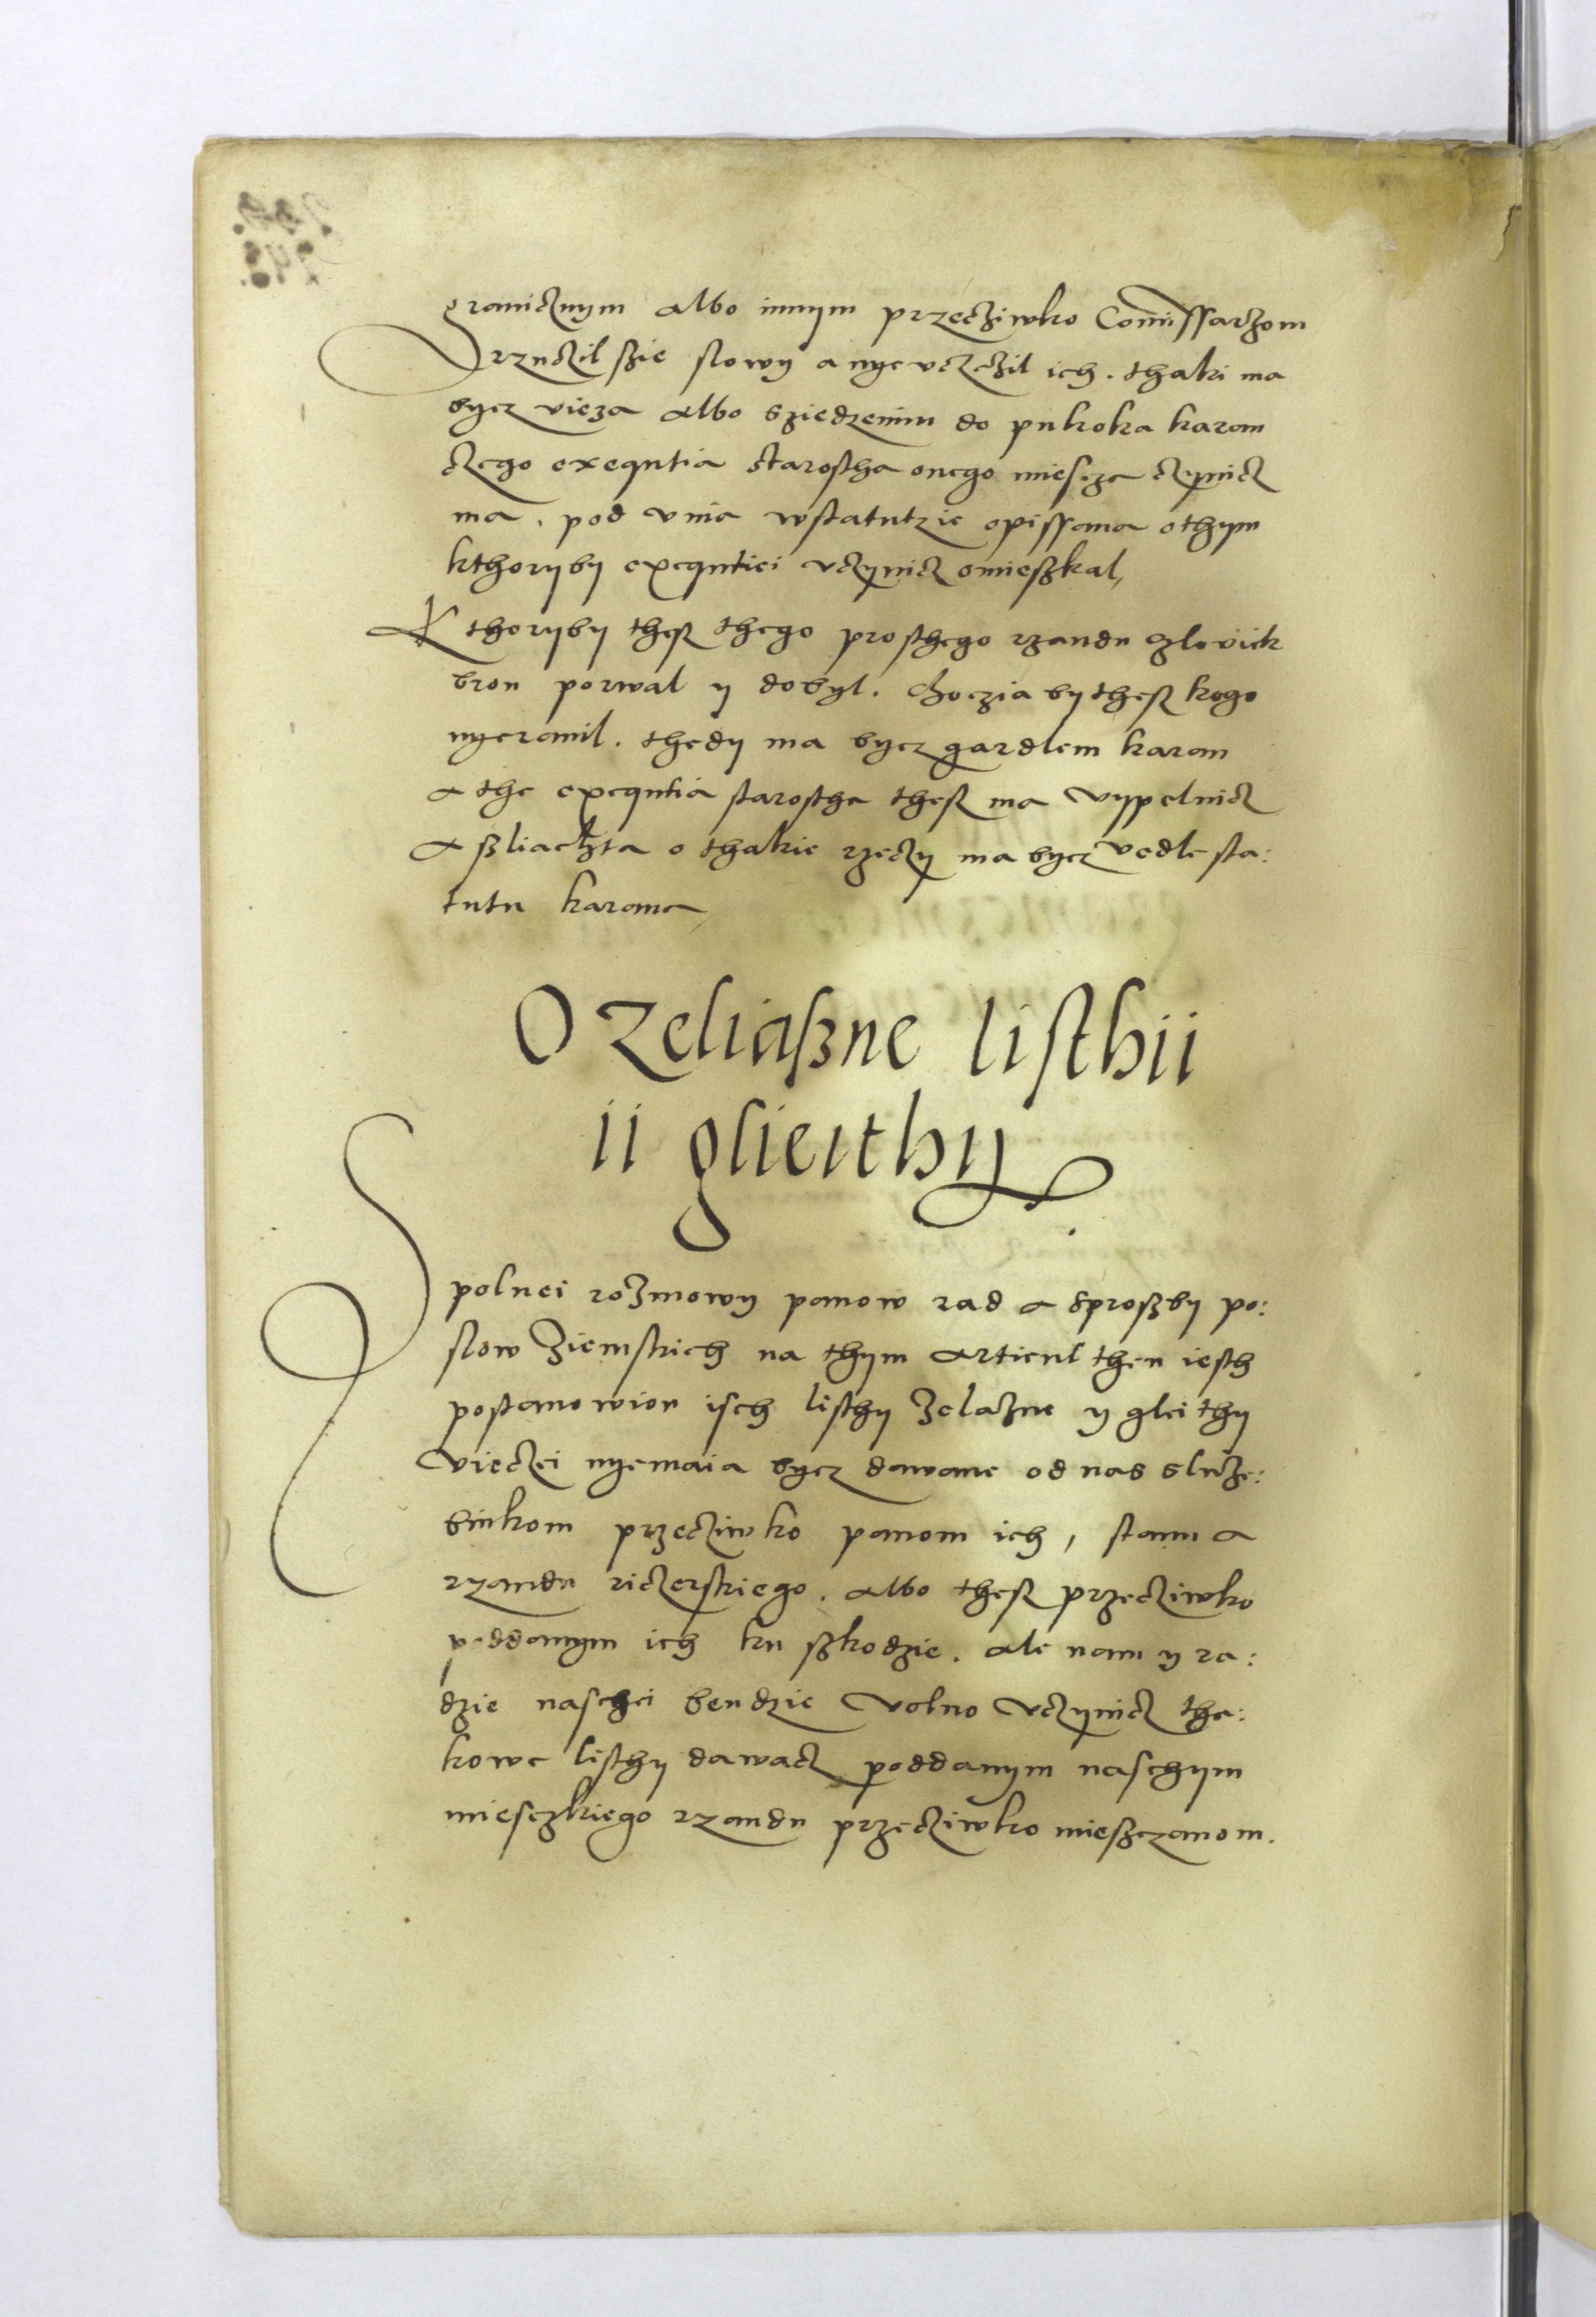 granicznym albo innym przecziwko Comissarzom
rzuczil szie slowy a nyeuczczil ich. thaki ma
bycz vieza albo sziedzenim do pukoka karan
czego exequtia starostha onego miescza czynicz
ma. pod vina wstatutzie opissana othym
kthoryby exequtiei uczynicz omieszkal,
Kthoryby thesz thego prosthego rzandu czloviek
bron porwal y dobyl. choczia by thesz kogo
nyeranil. thedy ma bycz gardlem karan
a the exequtia starostha thesz ma vypelnicz
a szliachta o thakie rzeczy ma bycz vedle sta:
tutu karana
O zeliaszne listhii
ii glieithy
Spolnei rozmowy panow rad a sproszby po:
slow ziemskich na thym articul then iesth
postanowion isch listhy zelazne y gleithy
vieczei nyemaia bycz dawane od nas sluze:
bnikom przecziwko panom ich, stanu a
rzandu riczerskiego. albo thesz przecziwko
poddanym ich ku szkodzie. ale nam y ra:
dzie naschei bendzie volno uczynicz tha:
kowe listhy dawacz poddanym naschym
miesczkiego rzandu przecziwko mieszczanom.